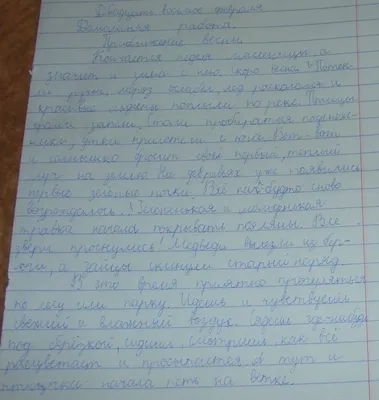 Двадцать восьмое февраля
Домашняя работа.
Приближение весны
Кончается пора масленицы, а
значит и зима с ней, скоро весна. Потек-
ли ручьи, мороз ослабел, лёд раскололся и
красивые льдины поплыли по реке. Птицы
запели, Стали пробираться подснеж-
ники, утки прилетели с юга. Вот-вот
и солнышко бросит свой первый, тёплый
луч на землю На деревьях уже появились
первые зелёные почки. Всё как будто снова
возрождалось! Зелененькая и молоденькая
травка начала покрывать поляны. Все
звери проснулись! Медведи вылезли из бер-
логи, а зайцы скинули старый наряд.
В это время приятно прогуляться
по лесу или парку. Идешь и чувствуешь
свежий и влажный воздух. Сядешь где-нибудь
под берёзкой, сидишь, смотришь как всё
расцветает и просыпается А тут и
птичка начала петь на ветке.